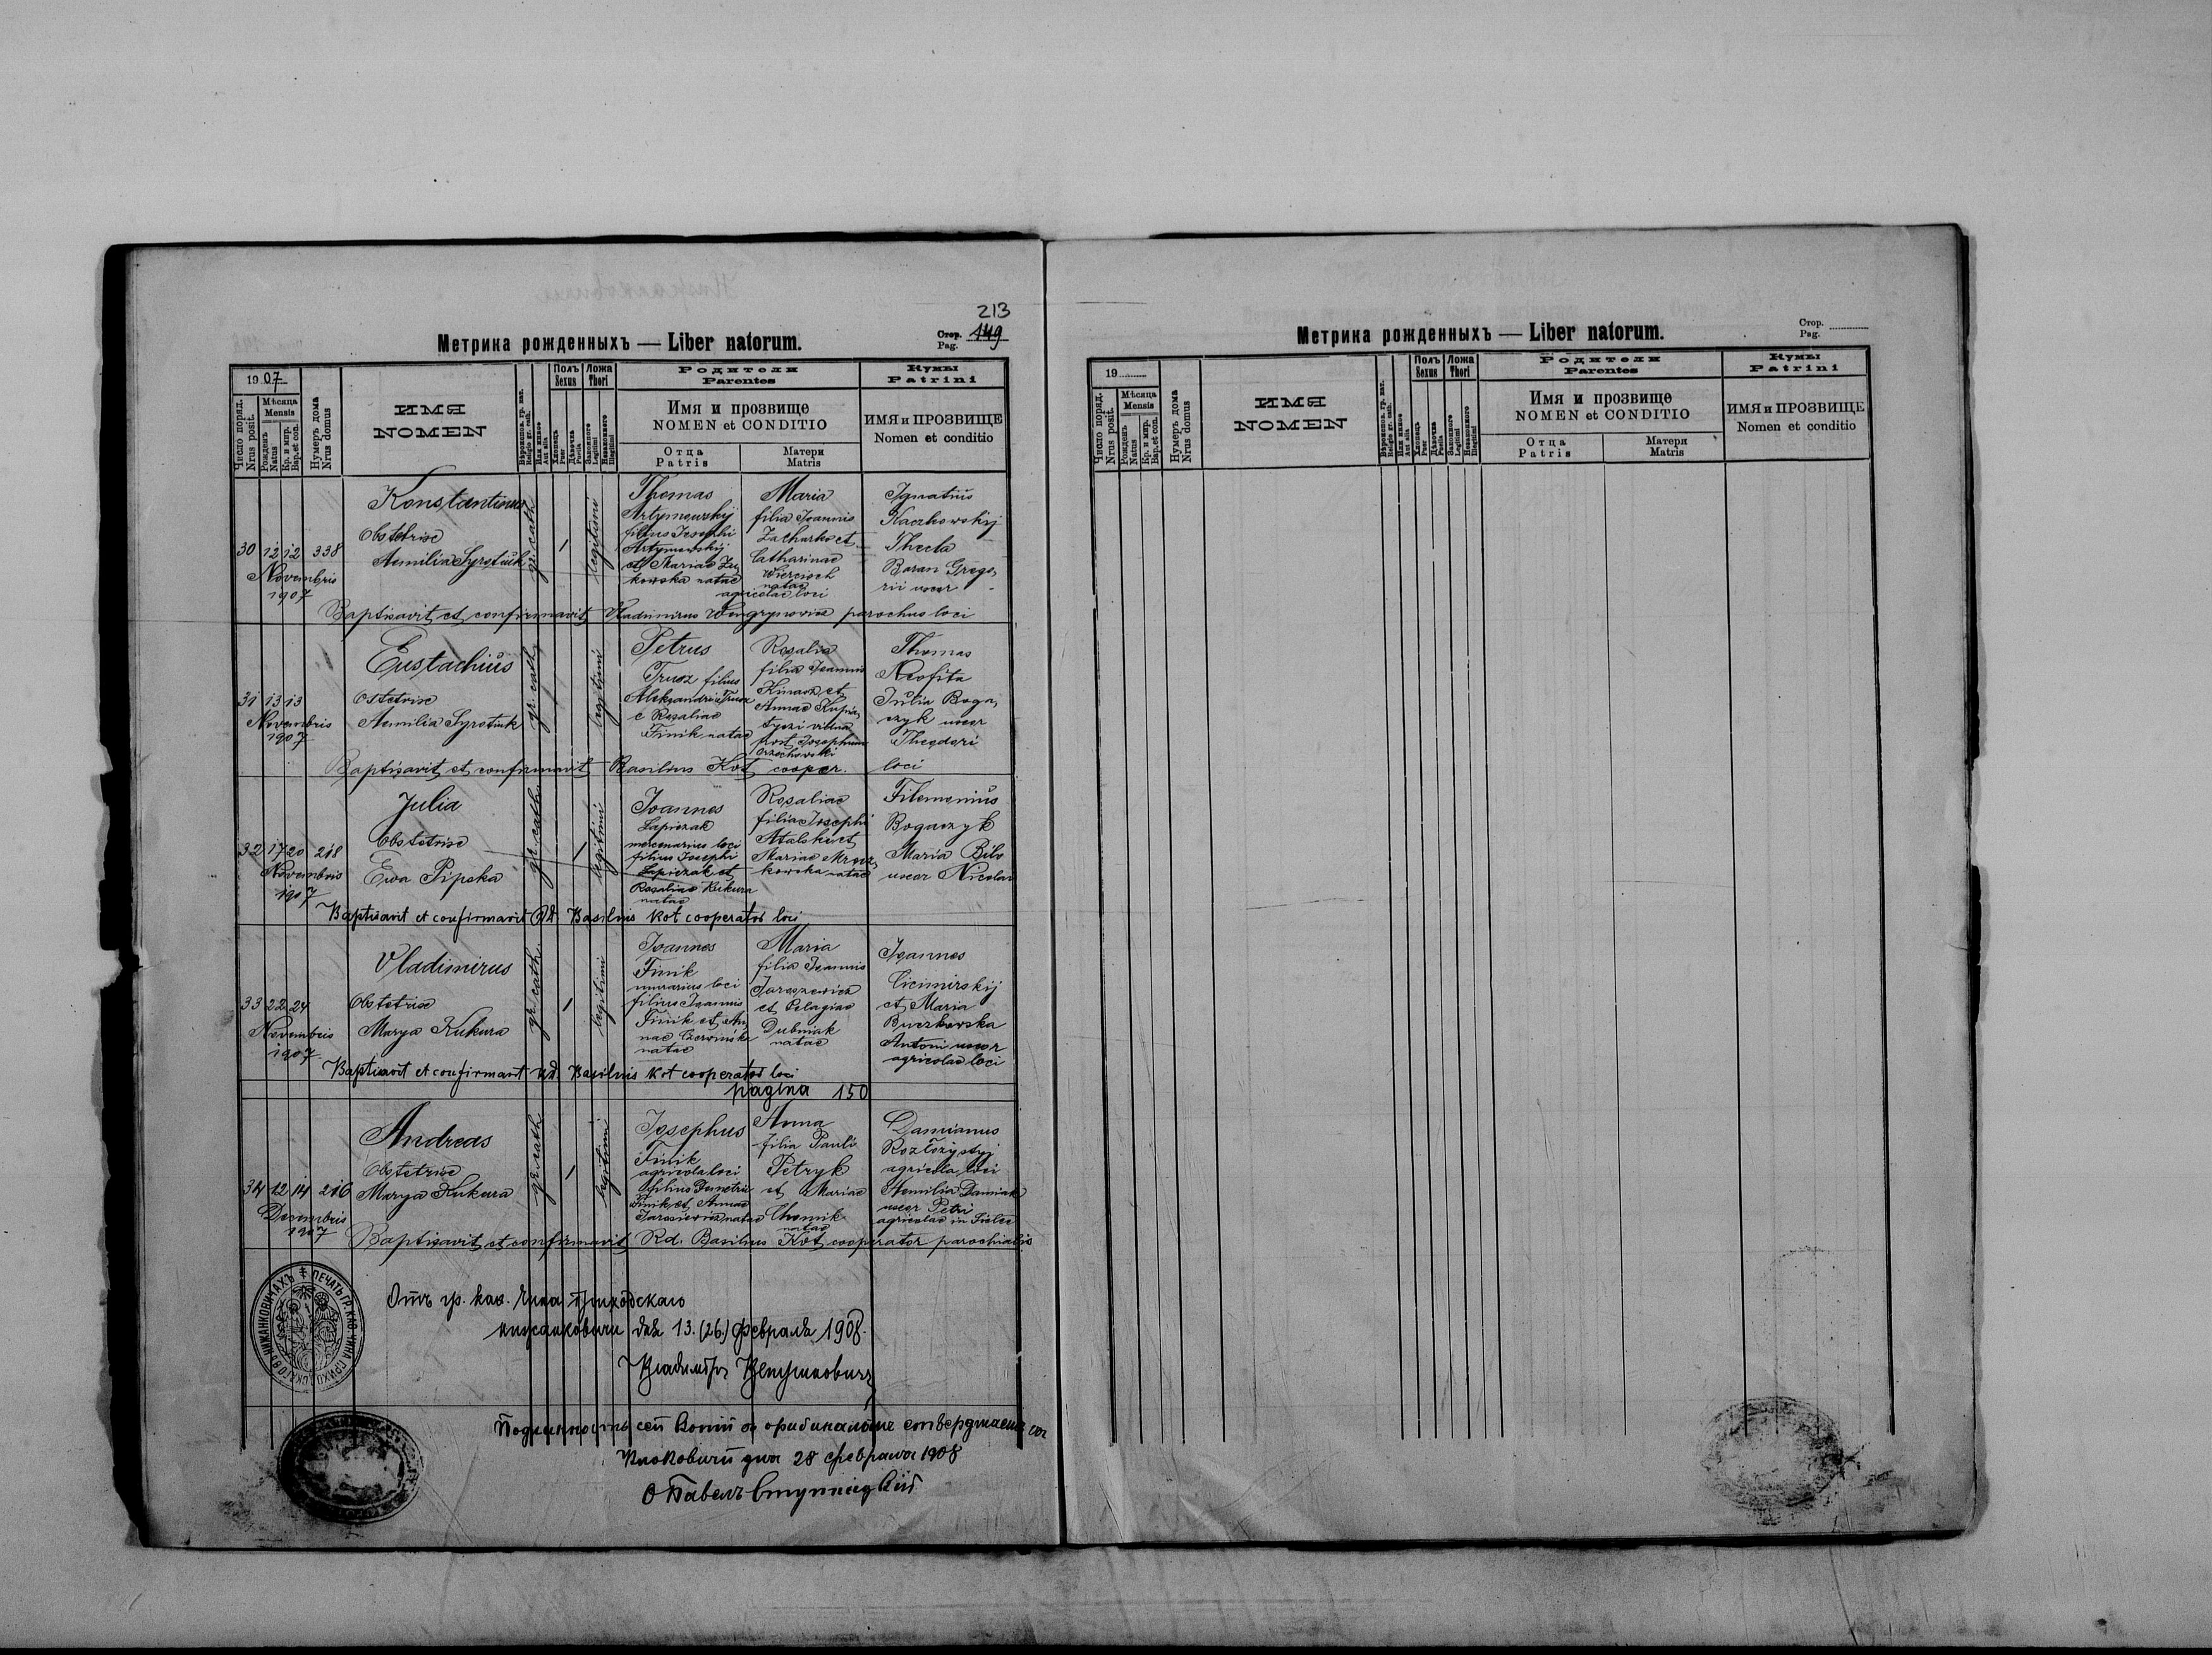 213
Метрика рожденныхъ — Liber natorum.
Стор. 149
Pag.
1907
Число поряд.
Nrus posit.
Мѣсяца
Mensis
Рожденъ
Natus
Кр. и мир.
Bap. et con.
Нумеръ дома
Nrus domus
ИМЯ
NOMEN
Вѣроиспов. гр. кат.
Religio gr. cath.
Или инное
Aut alia
Полъ
Sexus
Хлопецъ
Puer
Дѣвочка
Puella
Ложа
Thori
Законного
Legitimi
Незаконного
Illegitimi
Родители
Parentes
Имя и прозвище
NOMEN et CONDITIO
Отца
Patris
Матери
Matris
Кумы
Patrini
ИМЯ и ПРОЗВИЩЕ
Nomen et conditio
30 12 12 338
Novembris
1907
Konstantinus
Obstetrix
Aemilia Syrotiuk
gr. cath
legitimi
Thomas
Artymowskij
filius Josephi
Artymowskij
et Mariae
kowska natae
Maria
filia Joannis
Zacharko et
Catharinae
natae
agricolae loci
Ignatius
Kaczkowskij
Thecla
Baran Grego,
rii uxor
Baptisavit et confirmavit Vladimirus Wengrynowicz parochus loci
31 13 13
Novembris
1907
Eustachius
Ostetrix
Aemilia Syrotiuk
gr. cath
legitimi
Petrus
Trusz filius
Aleksandri Trusz
e Rosaliae
Finik natae
Rosalia
filia Joannis
et
Annae
vidua
post Josephum
Orzechowski
Thomas
Neofita
Julia Boga,
czyk uxor
Theodori
loci
Baptisavit et confirmavit Basilius Kot cooper.
32 17 20 218
Novembris
1907
Julia
Obstetrix
Ewa Pipska
gr. cath.
legitimi
Joannes
Lapiczak
mercenarius loci
filius Josephi
Lapiczak et
Rosaliae Kukura
natae
Rosaliae
filia Josephi
et
Mariae
kowska natae
Filemonius
Bogaczyk
Maria Bilo
uxor Nicolai
Baptisavit et confirmavit Rd. Basilius Kot cooperator loci
33 22 24
Novembris
1907
Vladimirus
Obstetrix
Marya Kukura
gr. cath.
legitimi
Joannes
Finik
murarius loci
filius Joannis
Finik et An,
nae Czerwinska
natae
Maria
filia Joannis
Jaroszewicz
et Pelagiae
Dubniak
natae
Joannes
Cicimirskij
et Maria
Buczkowska
Antoni uxor
agricolae loci
Baptisavit et confirmavit Rd. Basilius Kot cooperator loci
pagina 150
34 12 14 216
Decembris
1907
Andreas
Obstetrix
Marya Kukura
gr. cath
legitimi
Josephus
Finik
agricola loci
filius Demetrii
Finik et Annae
Jarosiewicz natae
Anna
filia Pauli
Petryk
et Mariae
Chomik
natae
Damianus
Rozłożystyj
agricola loci
Aemilia Damian
uxor Petri
agricolae in
Baptisavit et confirmavit Rd. Basilius Kot cooperator parochialis
Отъ гр. каѳ. чина приходскаго
Нижанковичи дня 13. (26.) Февраля 1908.
ПЕЧАТЬ ГР. КАѲ. ЧИНА ПРИХОДСКАГО ВЪ НИЖАНКОВИЧАХЪ
сей копіи
дня 28 февраля 1908
о Павелъ
Метрика рожденныхъ — Liber natorum.
Стор.
Pag.
19
Число поряд.
Nrus posit.
Мѣсяца
Mensis
Рожденъ
Natus
Кр. и мир.
Bap. et con.
Нумеръ дома
Nrus domus
ИМЯ
NOMEN
Вѣроиспов. гр. кат.
Religio gr. cath.
Или инное
Aut alia
Полъ
Sexus
Хлопецъ
Puer
Дѣвочка
Puella
Ложа
Thori
Законного
Legitimi
Незаконного
Illegitimi
Родители
Parentes
Имя и прозвище
NOMEN et CONDITIO
Отца
Patris
Матери
Matris
Кумы
Patrini
ИМЯ и ПРОЗВИЩЕ
Nomen et conditio